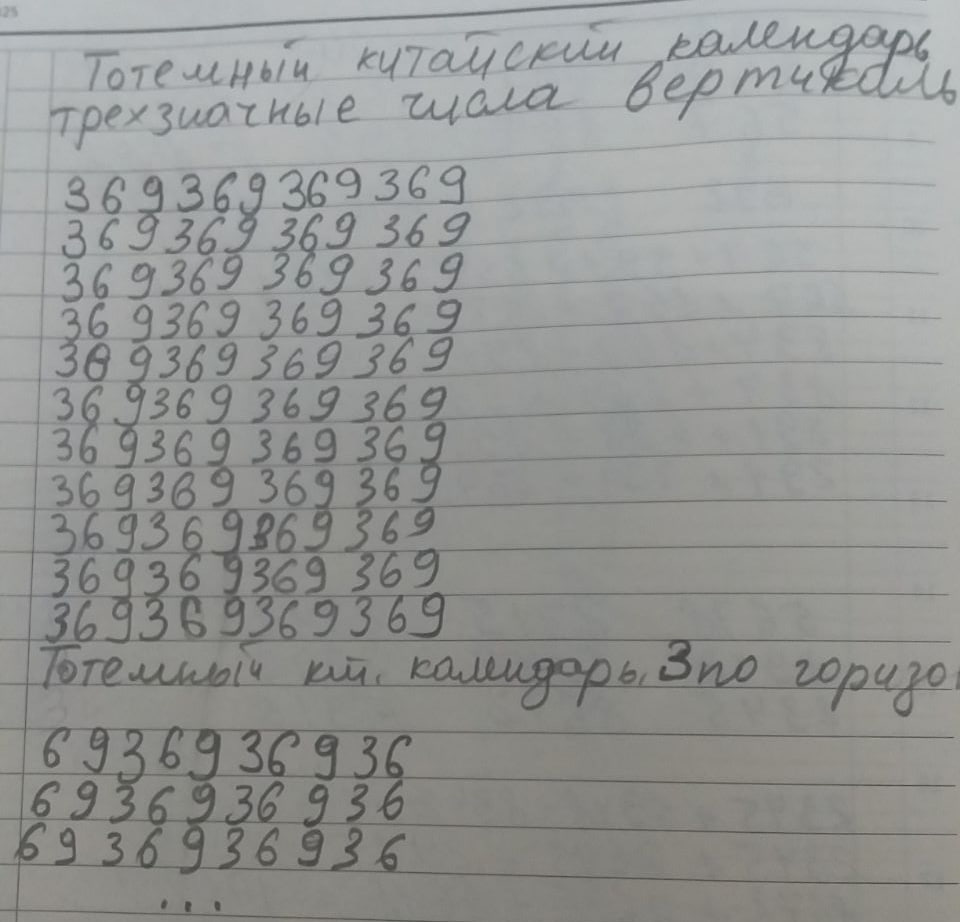 Тотемный китайский календарь
трехзначные числа вертикаль
369 369 369 369
369 369 369 369
369 369 369 369
369 369 369 369
369 369 369 369
369 369 369 369
369 369 369 369
369 369 369 369
369 369 369 369
369 369 369 369
369 369 369 369
Тотемный кит. календарь. 3 по горизо
6 9 3 6 9 3 6 9 3 6
6 9 3 6 9 3 6 9 3 6
6 9 3 6 9 3 6 9 3 6
...